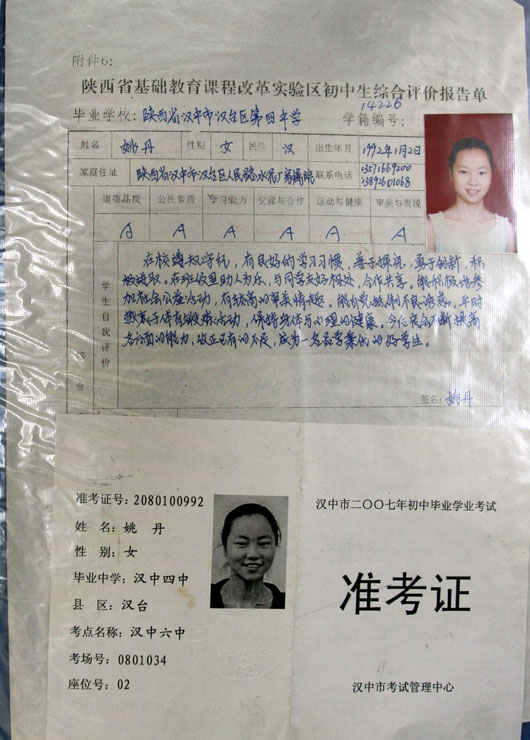 附件6:
陕西省基础教育课程改革实验区初中生综合评价报告单
毕业学校: 陕西省汉中市汉台区第四中学 学籍编号: 14226
姓名 姚丹 性别 女 民族 汉 出生年月 1992年1月2日
家庭住址 陕西省汉中市汉台区人民路水泥厂家属院 联系电话 13571669200
13892601068
道德品质 公民素质 学习能力 交流与合作 运动与健康 审美与表现
A A A A A A
学生自我评价
在校遵规守纪,有良好的学习习惯,善于探究,勇于创新,积
极进取。在班级里助人为乐,与同学友好相处,合作共享。能积极地参
加社会公益活动,有较高的审美情趣。
热衷于体育锻炼活动,保持身体与心理的健康。今后我会不断提高
各方面的能力,改正已有的不足,成为一名品学兼优的好学生。
签名: 姚丹
准考证号: 2080100992
姓 名: 姚 丹
性 别: 女
毕业中学: 汉中四中
县 区: 汉台
考点名称: 汉中六中
考场号: 0801034
座位号: 02
汉中市二〇〇七年初中毕业学业考试
准考证
汉中市考试管理中心